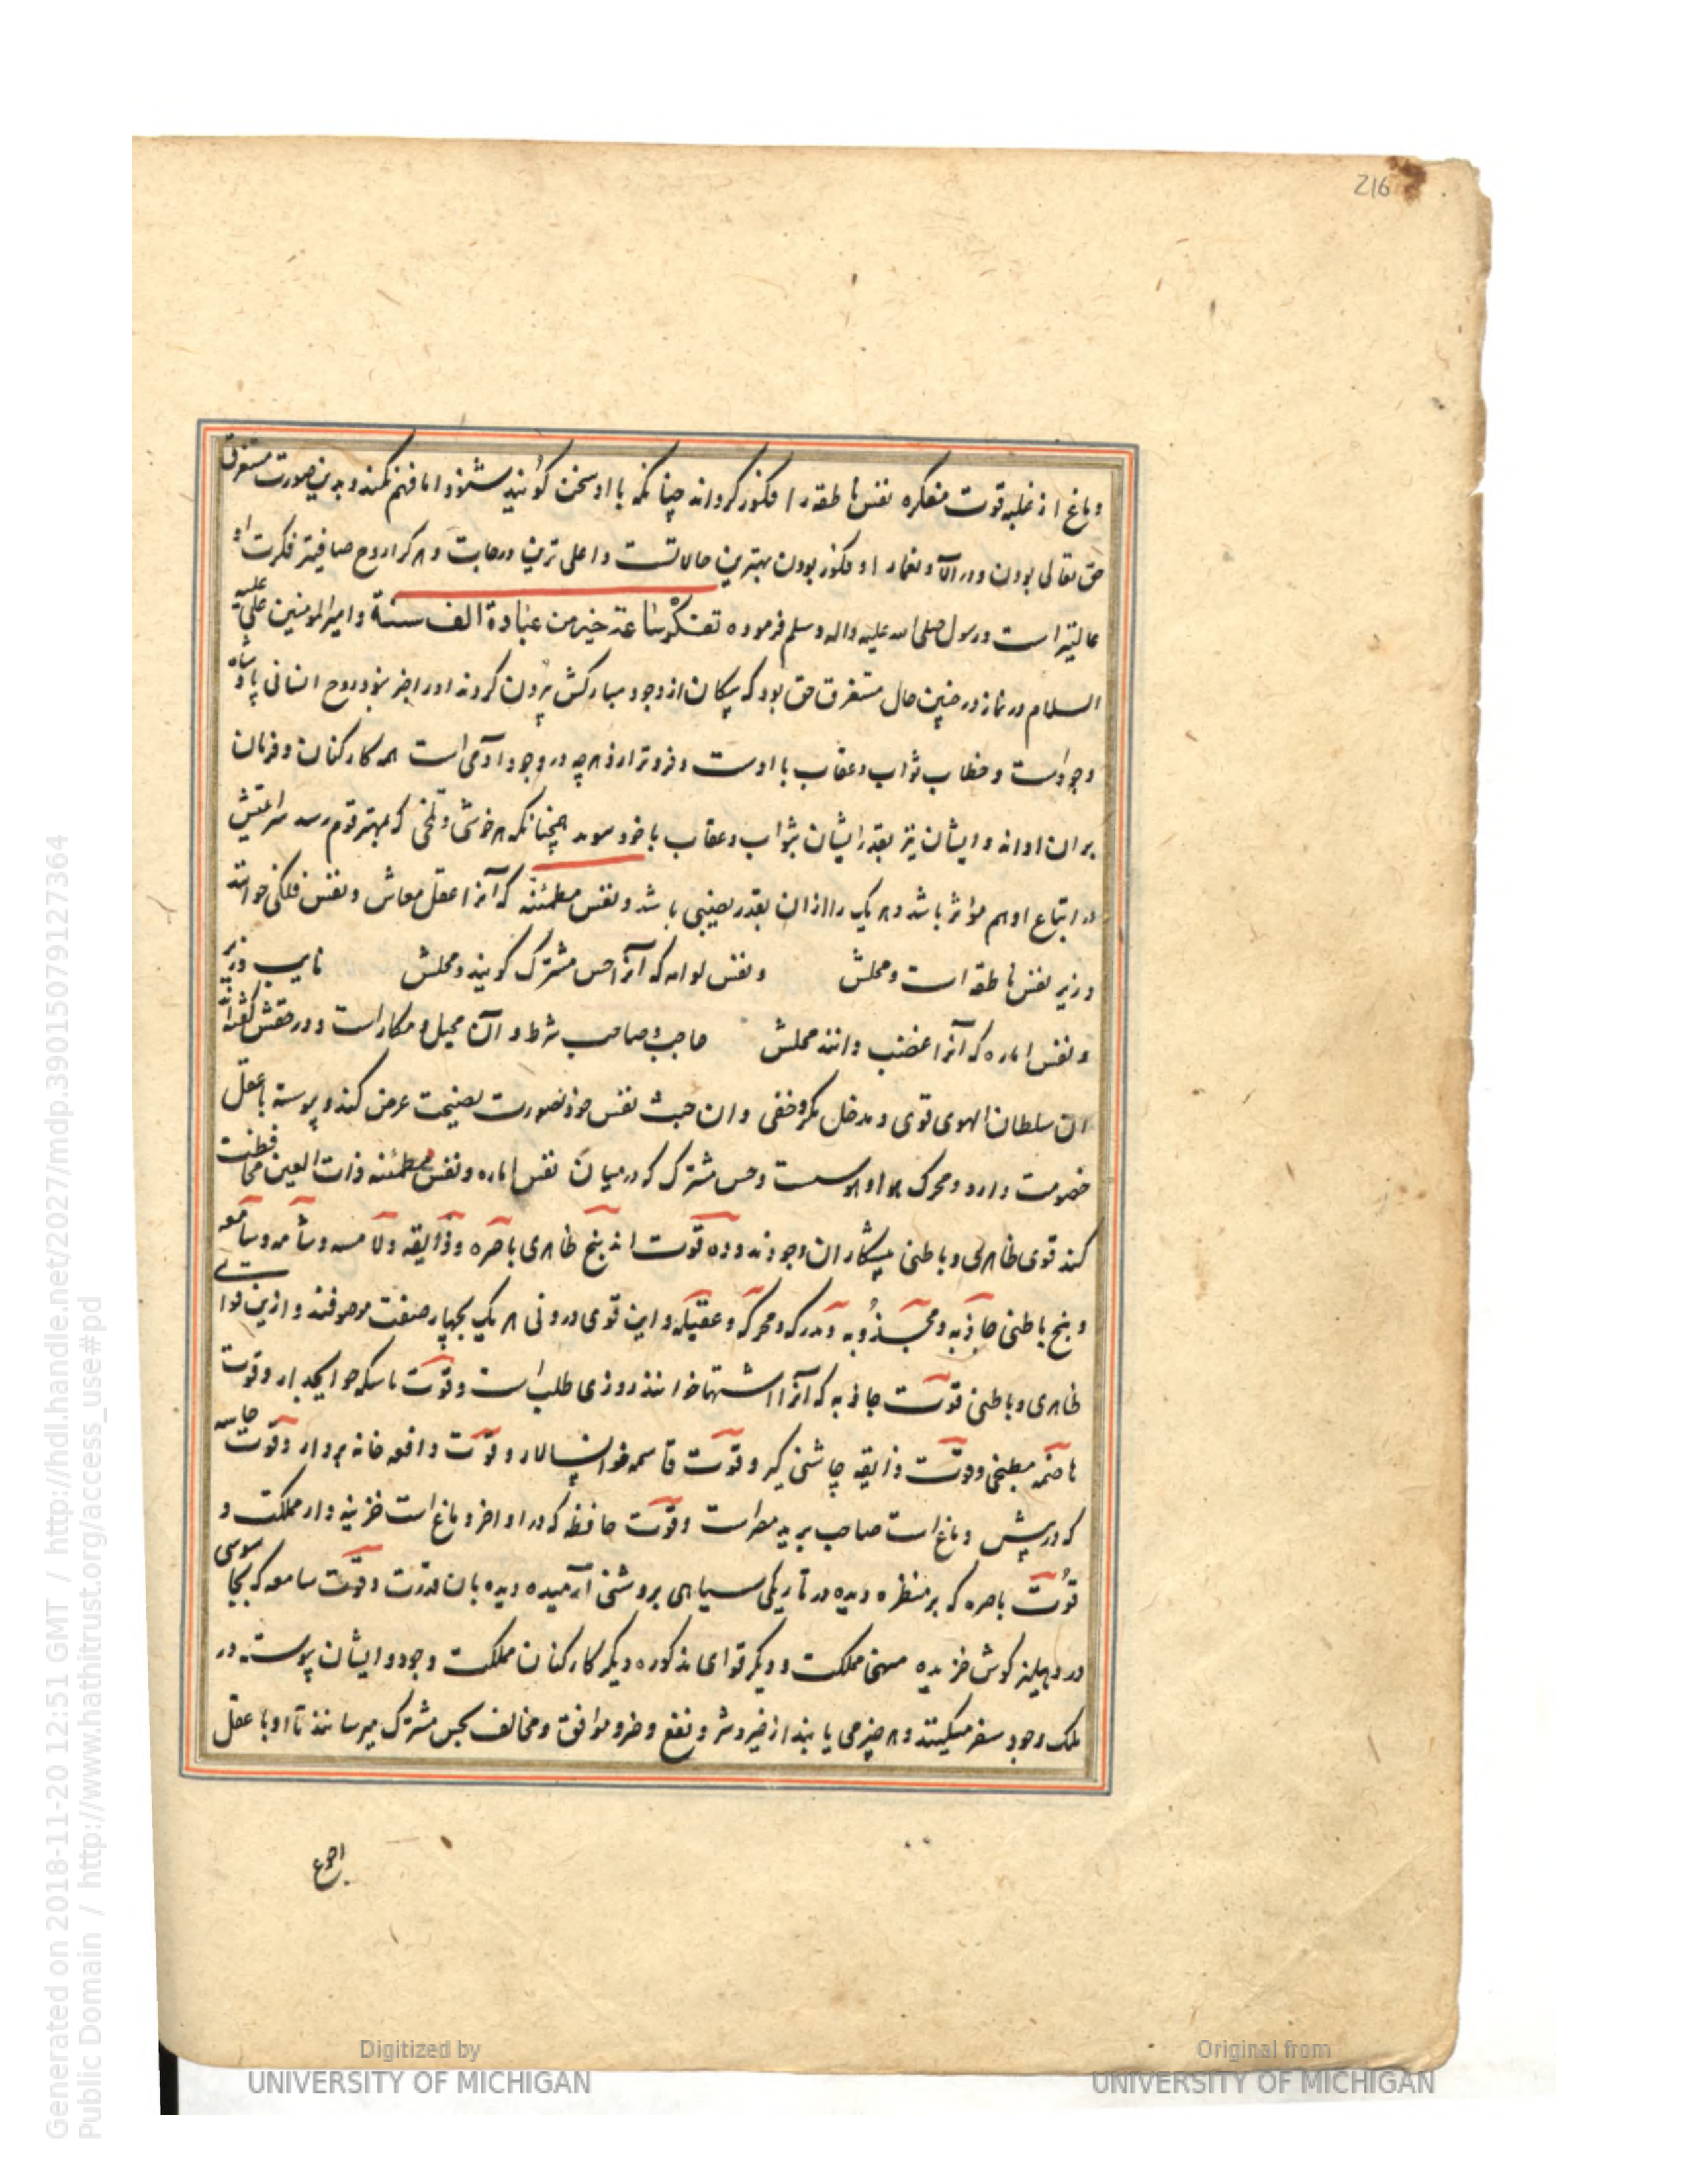 216
دماغ از غلبه قوت متفکره نفس ناطقه را مکنوز کرداند چنانکه با او سخن کویند بشنود اما فهم نکند و بدین صورت مستغرق
حق تعالی بودن و در آلا و نعماء او مکنوز بودن بهترین حالاتست و اعلی ترین درجات و هر کرا روح صافیتر فکرت او
عالیتر است و رسول صلی الله علیه واله وسلم فرموده تفکر ساعة خیر من عبادة الف سنة و امیر المومنین علی علیه
السلام در نماز در چنین حال مستغرق حق بود که پیکان از وجود مبارکش بیرون کردند او را خبر نبود و روح انسانی پادشاه
وجود است و خطاب ثواب و عقاب با اوست و فروتر ازو هرچه در وجود آدمی است همه کارکنان و فرمان
بران اواند و ایشان نیز بقدر ایشان بثواب و عقاب ماخوذ شوند همچنانکه هر خوشی و تلخی که بمهتر قوم رسد سرایتش
در اتباع او هم موثر باشد و هر یک را از آن بقدر نصیبی باشد و نفس مطمئنه که آنرا عقل معاش و نفس فلکی خوانند
وزیر نفس ناطقه است و محلش و نفس لوامه که آنرا حس مشترک کویند و محلش نایب وزیر
و نفس اماره که آنرا غضب دانند محلش حاجب و صاحب شرط و آن محیل و مکار است و در حقش کفته اند
ان سلطان الهوی قوی و مدخل مکره خفی و ان خبث نفس خود بصورت نصیحت عرض کند و پیوسته با عقل
خصومت دارد و محرک هوا و هوس است و حس مشترک که در میان نفس اماره و نفس مطمئنه ذات البین محافظت
کند قوی ظاهری و باطنی پیشکاران وجودند و ده قوت اند پنج ظاهری باصره و ذایقه و لامسه و شامه و سامعه
و پنج باطنی جاذبه و مجذوبه و مدرکه و محرکه و عقیله و این قوی درونی هر یک بچهار صفت موصوفند و ازین قوا
ظاهری و باطنی قوت جاذبه که آنرا اشتها خوانند روزی طلب است و قوت ماسکه حوایجدار و قوت
هاضمه مطبخی و قوت ذایقه چاشنی کیر و قوت قاسمه خوانسالار و قوت دافعه خانه بردار و قوت
که در پیش دماغ است صاحب برید مطراست و قوت حافظه که در اواخر دماغ است خزینه دار مملکت و
قوت باصره که بر منظره دیده در تاریکی سیاهی بروشنی آرمیده دیده بان قدرت و قوت سامعه که بجاسوسی
در دهلیز کوش خزیده منهی مملکت و دیکر قوای مذکوره دیکر کارکنان مملکت وجود و ایشان پیوسته در
ملک وجود سفر میکنند و هر چیز می یابند از خیر و شر و نفع و ضر و موافق و مخالف بحس مشترک میرسانند تا او با عقل